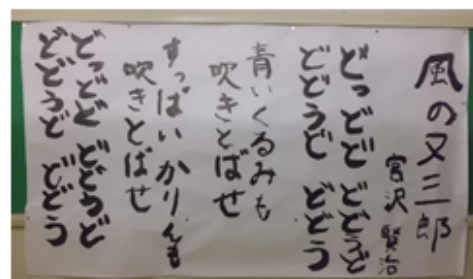 風の又三郎
宮沢 賢治
どっどど どどうど
どどうど どどう
青いくるみも
吹きとばせ
すっぱいかりんも
吹きとばせ
どっどど どどうど
どどうど どどう